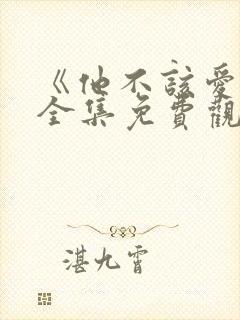 《他不該愛
全集免費觀
湛九霄